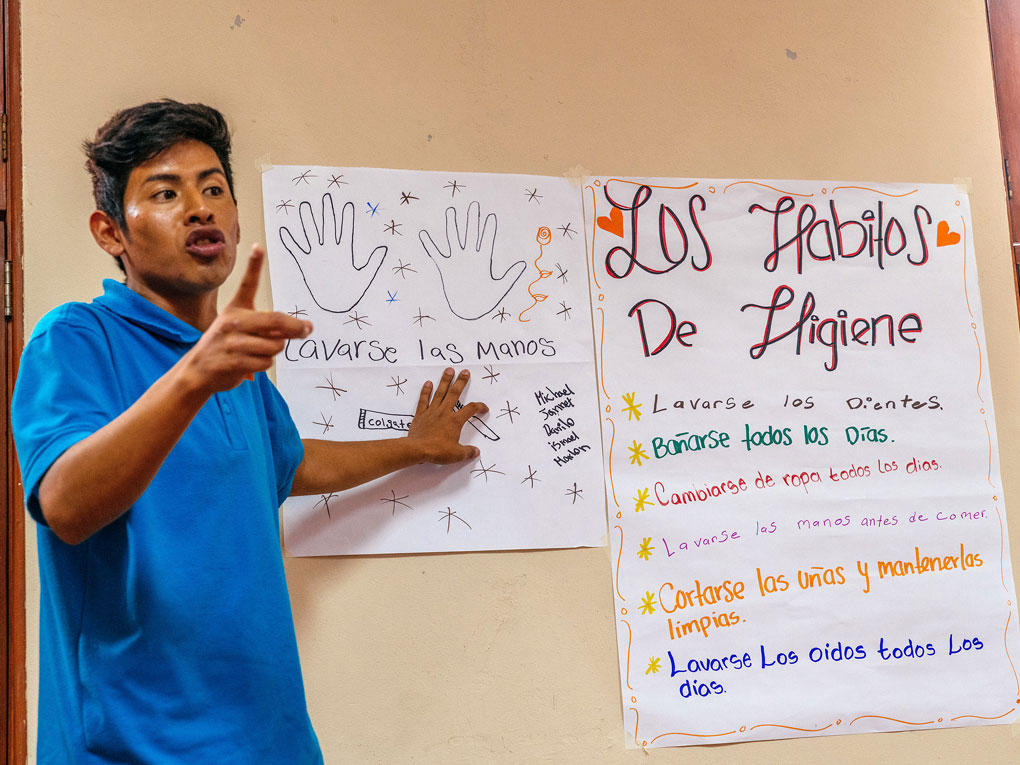 Lavarse las Manos
colgate
Michael
Jarmet
Danilo
ismael
Marlon
Los Habitos
De Higiene
Lavarse los Dientes.
Bañarse todos los Días.
Cambiarse de ropa todos los dias.
Lavarse las manos antes de comer.
Cortarse las uñas y mantenerlas
limpias.
Lavarse Los oidos todos Los
dias.